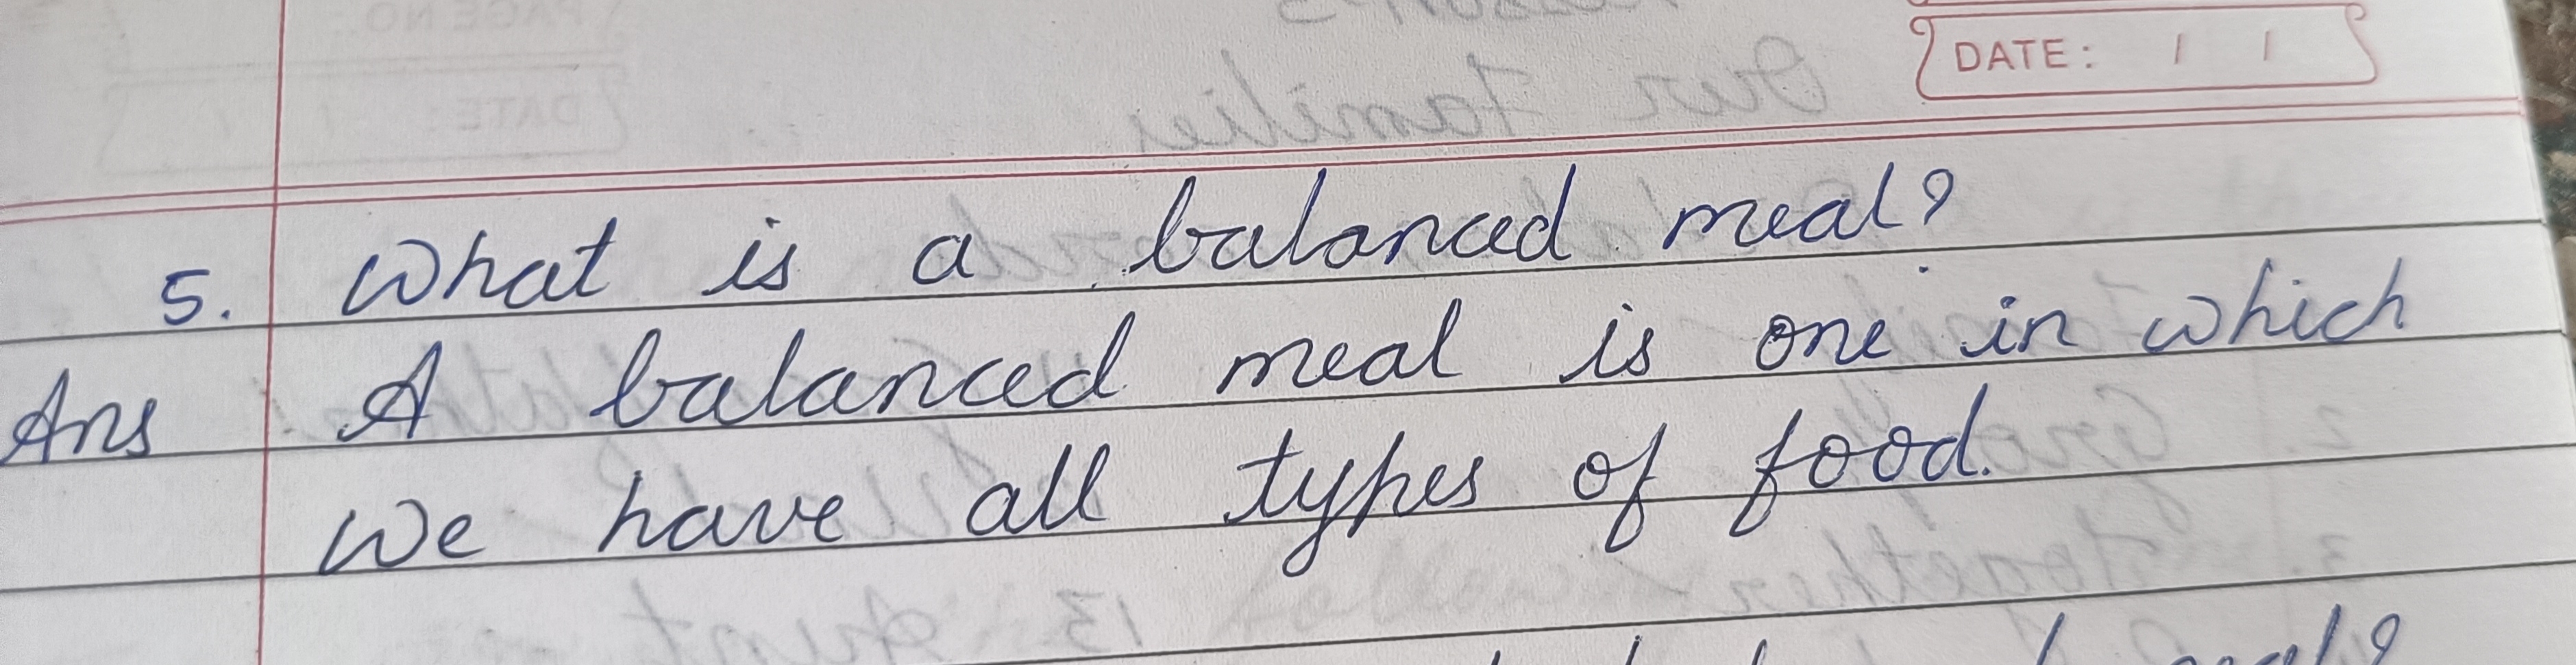 DATE: / /
5. What is a balanced meal?
Ans A balanced meal is one in which
we have all types of food.